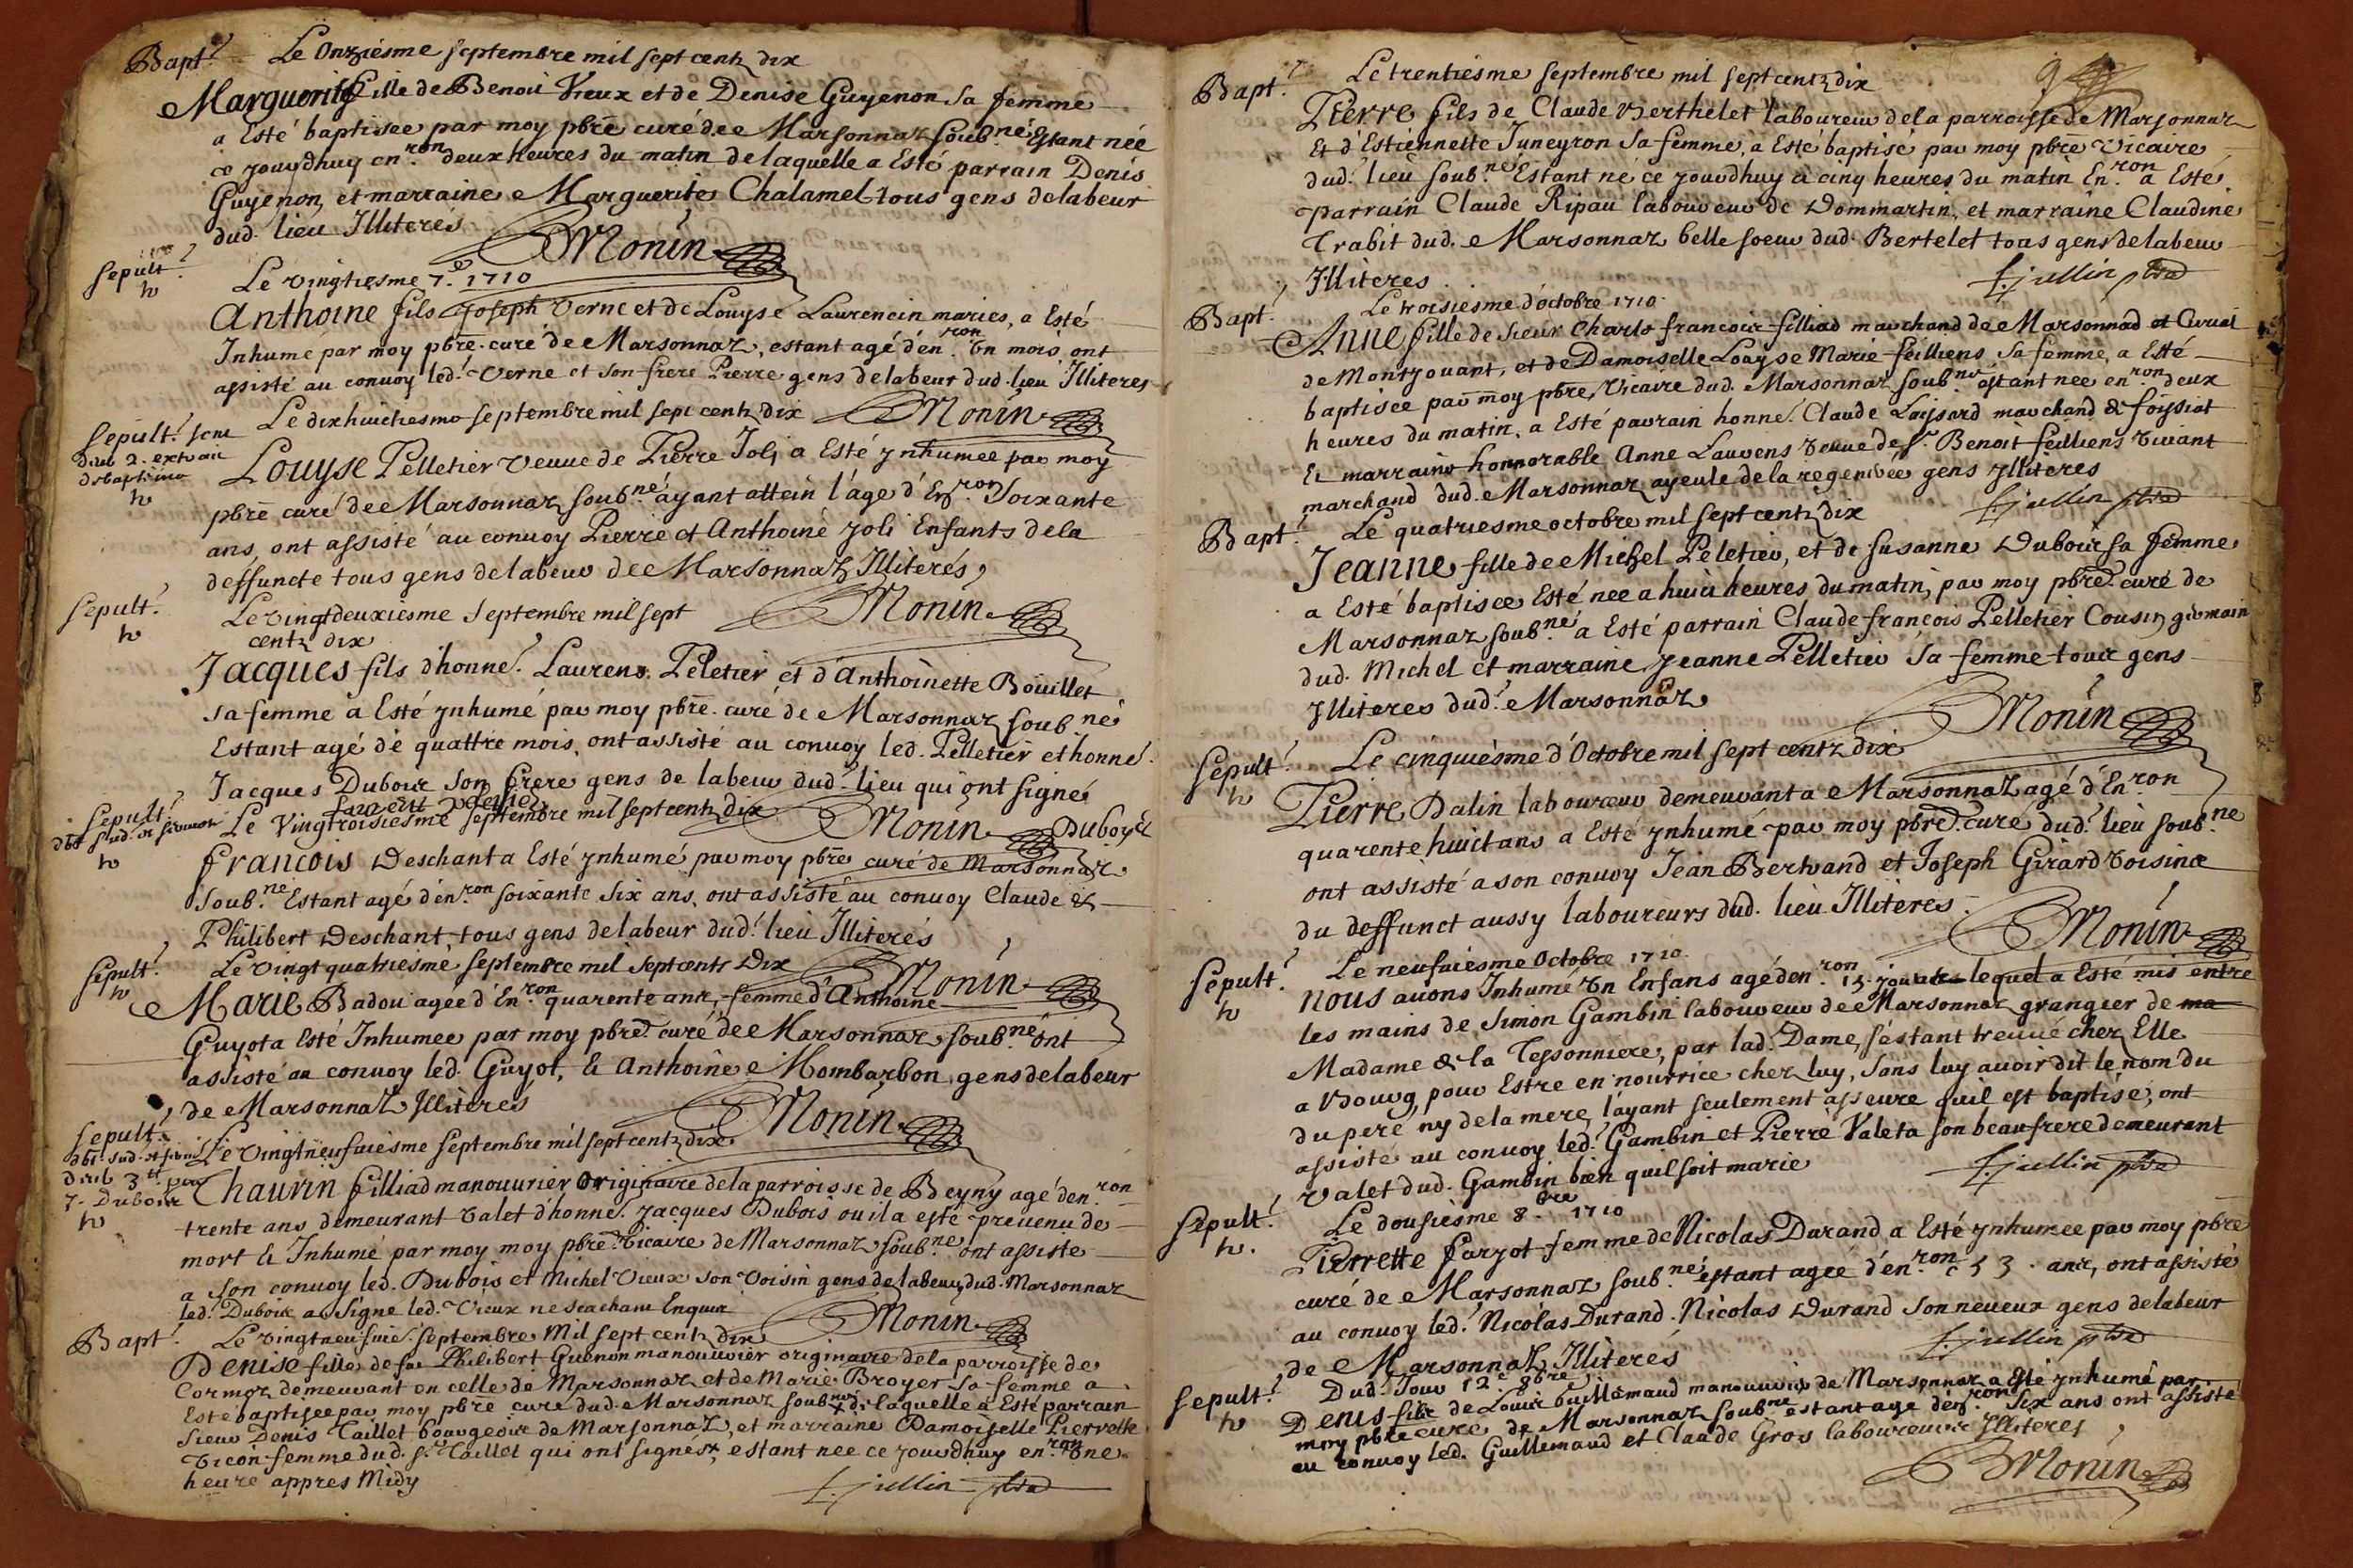 Bapt. Le Onziésme septembre mil sept centz dix
Marguerite fille de Benoit Vieux et de Denise Guyenon sa femme
a Esté baptisee par moy pbre curé de Marsonnaz soub.né Estant née
ce jourdhuy en.ron deux heures du matin de laquelle a Esté parrain Denis
Guyenon, et marraine Marguerite Chalamel tous gens de labeur
dud. lieu Illiterés
BMonin
Sepult.
Le vingtiesme 7.e 1710
Anthoine fils Joseph Verne et de Louyse Laurencin mariés, a Esté
Inhumé par moy pbre. curé de Marsonnaz, estant agé d'én.ron Un mois, ont
assisté au convoy led. Verne et son frere Pierre gens de labeur dud. lieu Illiteres
Le dixhuictiesme septembre mil sept centz dix BMonin
Sepult.
Louyse Pelletier veuue de Pierre Joli a Esté ynhumee par moy
pbre curé de Marsonnaz soub.né ayant attein l'áge d'En.ron Soixante
ans, ont assisté au convoy Pierre et Anthoine Joli Enfants de la
deffuncte tous gens de labeur de Marsonnaz Illiterés
BMonin
Sepult. Le vingtdeuxiesme septembre mil sept
centz dix
Jacques fils d'honne. Laurens Peletier et d'Anthoinette Bouillet
sa femme a Esté ynhumé par moy pbre. curé de Marsonnaz soub.né
Estant agé de quattre mois, ont assisté au convoy led. Pelletier et honne.
Jacques Dubois son frere gens de labeur dud. lieu qui ont signé
Sepult. Le Vingtroisiesme septembre mil sept centz dix BMonin Duboys
francois Deschant a Esté ynhumé par moy pbre curé de Marsonnaz
soub.né Estant agé d'én.ron soixante six ans, ont assisté au convoy Claude &
Philibert Deschant, tous gens de labeur dud. lieu Illiterés
Sepult. Le vingt quatriesme septembre mil sept centz Dix BMonin
Marie Badou agee d'En.ron quarente ans, femme d'Anthoine
Guyot a Esté Inhumee par moy pbre. curé de Marsonnaz soub.né ont
assisté au convoy led. Guyot, & Anthoine Mombarbon gens de labeur
de Marsonnaz Illiterés BMonin
Sepult. Le Vingtneufuiesme septembre mil sept centz dix
Dubois
Chaurin filliad manouurier originaire de la parroisse de Beyny agé d'en.ron
trente ans demeurant valet d'honne. Jacques Dubois ou il a esté preuenu de
mort & Inhumé par moy moy pbre. vicaire de Marsonnaz soub.né ont assisté
a son convoy led. Dubois et Michel Vieux son voisin gens de labeur dud. Marsonnaz
led. Dubois a signé led. Vieux ne scachant Enquis BMonin
Bapt. Le vingtneufuie. septembre Mil sept centz dix
Denise fille de feu Philibert Guenon manouurier originaire de la parroisse de
Cormoz demeurant en celle de Marsonnaz et de Marie Broyer sa femme a
Esté baptisee par moy pbre curé dud. Marsonnaz soub.né de laquelle a Esté parrain
sieur Denis Taillet bourgeois de Marsonnaz, et marraine Damoiselle Pierrette
Vicon femme dud. s. Taillet qui ont signés, estant nee ce jourdhuy en.ron Une
heure appres Midy
f. jullin pbre
9
Bapt. Le trentiesme septembre mil sept centz dix
Pierre fils de Claude Berthelet laboureur de la parroisse de Marsonnaz
Et d'Estiennette Juneyron sa femme, a Esté baptisé par moy pbre vicaire
dud. lieu soub.né Estant né ce jourdhuy a cinq heures du matin En.ron a Esté
parrain Claude Ripau laboureur de Dommartin, et marraine Claudine
Trabit dud. Marsonnaz belle soeur dud. Bertelet tous gens de labeur
Illiteres f. jullin pbre
Bapt. Le troisiesme d'octobre 1710.
Anne fille de sieur Charle francois filliad marchand de Marsonnad et Curial
de Montjouant, et de Damoiselle Louyse Marie feilliens sa femme, a Esté
baptisee par moy pbre, vicaire dud. Marsonnaz soub.né estant nee en.ron deux
heures du matin, a Esté parrain honne. Claude Loysard marchand & foissiat
Et marraine honnorable Anne Laurens veuue de s.r Benoit feilliens viuant
marchand dud. Marsonnaz ayeule de la regenérée gens Illiteres
f. jullin pbre
Bapt. Le quatriesme octobre mil sept centz dix
Jeanne fille de Michel Peletier, et de susanne Dubois sa femme
a Esté baptisee Esté nee a huict heures du matin, par moy pbre. curé de
Marsonnaz soub.né a Esté parrain Claude francois Pelletier Cousin germain
dud. Michel et marraine Jeanne Pelletier sa femme tous gens
Illiteres dud. Marsonnaz BMonin
Sepult. Le cinquiésme d'Octobre mil sept centz dix
Pierre Dalin laboureur demeurant a Marsonnaz agé d'En.ron
quarente huict ans a Esté ynhumé par moy pbre. curé dud. lieu soub.né
ont assisté a son convoy Jean Bertrand et Joseph Girard voisins
du deffunct aussy laboureurs dud. lieu Illiteres. BMonin
Sepult. Le neufuiésme Octobre 1710.
Nous auons Inhumé Un Enfans agé d'en.ron 15. jours lequel a Esté mis entre
les mains de Simon Gambin laboureur de Marsonnaz grangier de ma
Madame de la Tessonniere, par lad. Dame, s'éstant treuué chez Elle
a Bourg, pour Estre en nourrice chez luy, sans luy auoir dit le nom du
du pere ny de la mere, l'ayant seulement asseuré quil est baptisé, ont
assisté au convoy led. Gambin et Pierre Valeta son beaufrere demeurant
valet dud. Gambin bien quil soit marie f. jullin pbre
Sepult. Le dousiésme 8.bre 1710
Pierrette farjot femme de Nicolas Durand a Esté ynhumee par moy pbre
curé de Marsonnaz soub.né estant agee d'én.ron 53. ans, ont assisté
au convoy led. Nicolas Durand. Nicolas Durand son neueux gens de labeur
de Marsonnaz Illiterés f. jullin pbre
Sepult. Dud. Jour 12.e 8bre
Denis fils de Louis Guillemaud manouurier de Marsonnaz a Esté ynhumé par
moy pbre curé de Marsonnaz soub.né estant agé d'en.ron six ans ont assisté
au convoy led. Guillemaud et Claude Gros laboureurs Illiteres
BMonin